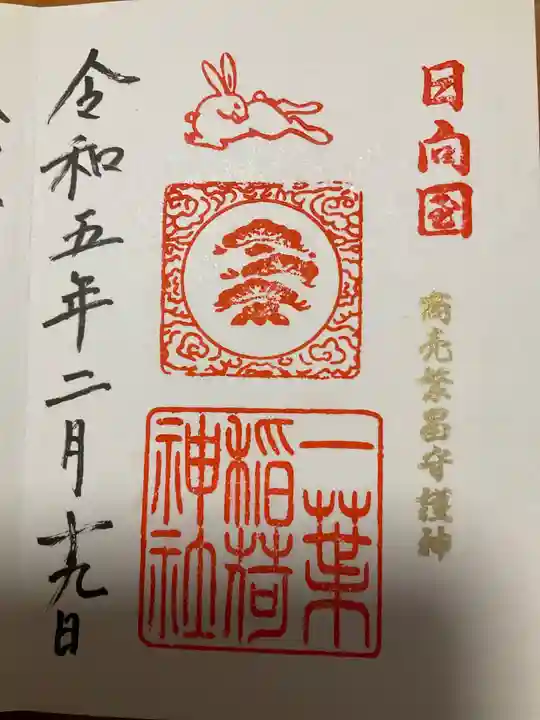 日向国
商売繁昌守護神
一葉
稲荷
神社
令和五年二月十九日